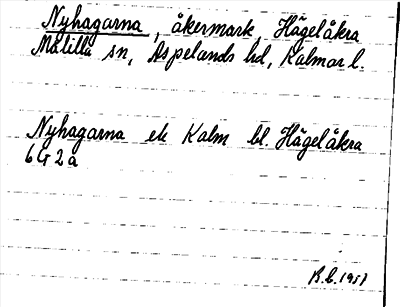 Nyhagarna, åkermark, Hägelåkra
Målilla sn, Aspelands hd, Kalmar l.
Nyhagarna ek Kalm bl. Hägelåkra
6G2a
R.C. 1951